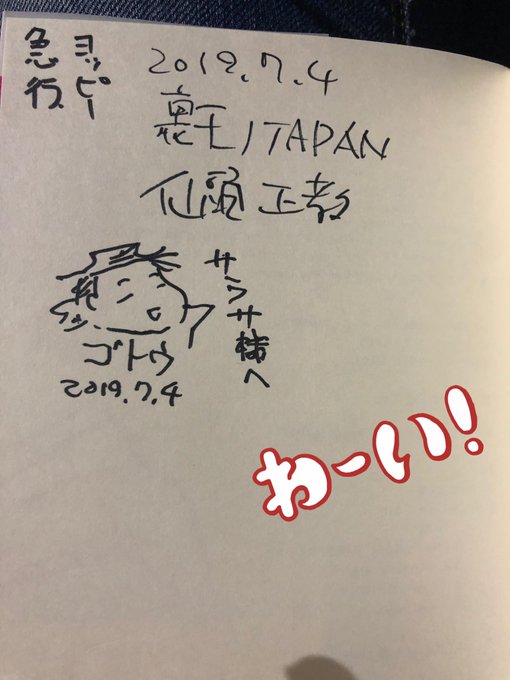 ヨッピー
急行
2019.7.4
裏モノJAPAN
仙頭正教
サラサ様へ
ゴトウ
2019.7.4
わーい!